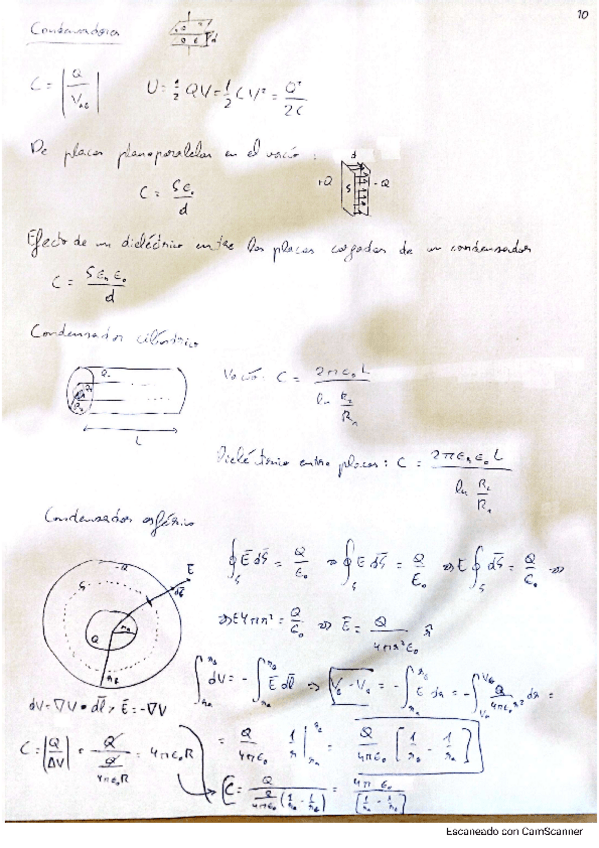 10
Condensadores
d
C = |Q / V_AB|   U = 1/2 QV = 1/2 CV² = Q² / 2C
De placas planoparalelas en el vacío:
d
+Q S -Q
C = Sε₀ / d
Efecto de un dieléctrico entre las placas cargadas de un condensador
C = Sεᵣε₀ / d
Condensador cilíndrico
L
Vacío: C = 2πε₀L / ln R₂/R₁
Dieléctrico entre placas: C = 2πεᵣε₀L / ln R₂/R₁
Condensador esférico
∮_S Ē ds̄ = Q/ε₀ ⇒ ∮_S E ds̄ = Q/ε₀ ⇒ E ∮_S ds̄ = Q/ε₀ ⇒
⇒ E 4πr² = Q/ε₀ ⇒ Ē = Q / 4πr²ε₀ r̂
dV = ∇V • dl̄ , Ē = -∇V
∫ dV = - ∫ Ē dl̄ ⇒ V_B - V_A = - ∫ E dr = - ∫ Q / 4πε₀r² dr =
= Q / 4πε₀ 1/r | = Q / 4πε₀ [1/r_B - 1/r_A]
C = |Q / ΔV| = Q / (Q / 4πε₀R) = 4πε₀R
C = Q / (Q / 4πε₀ (1/r_A - 1/r_B)) = 4πε₀ / [1/r_A - 1/r_B]
Escaneado con CamScanner